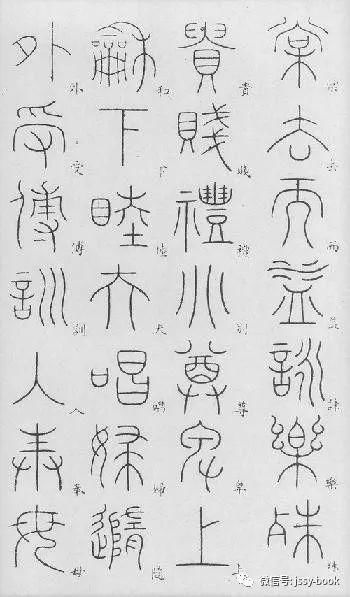 棠去而益詠樂殊
貴賤禮別尊卑上
和下睦夫唱婦隨
外受傅訓入奉母
微信号: jssy-book